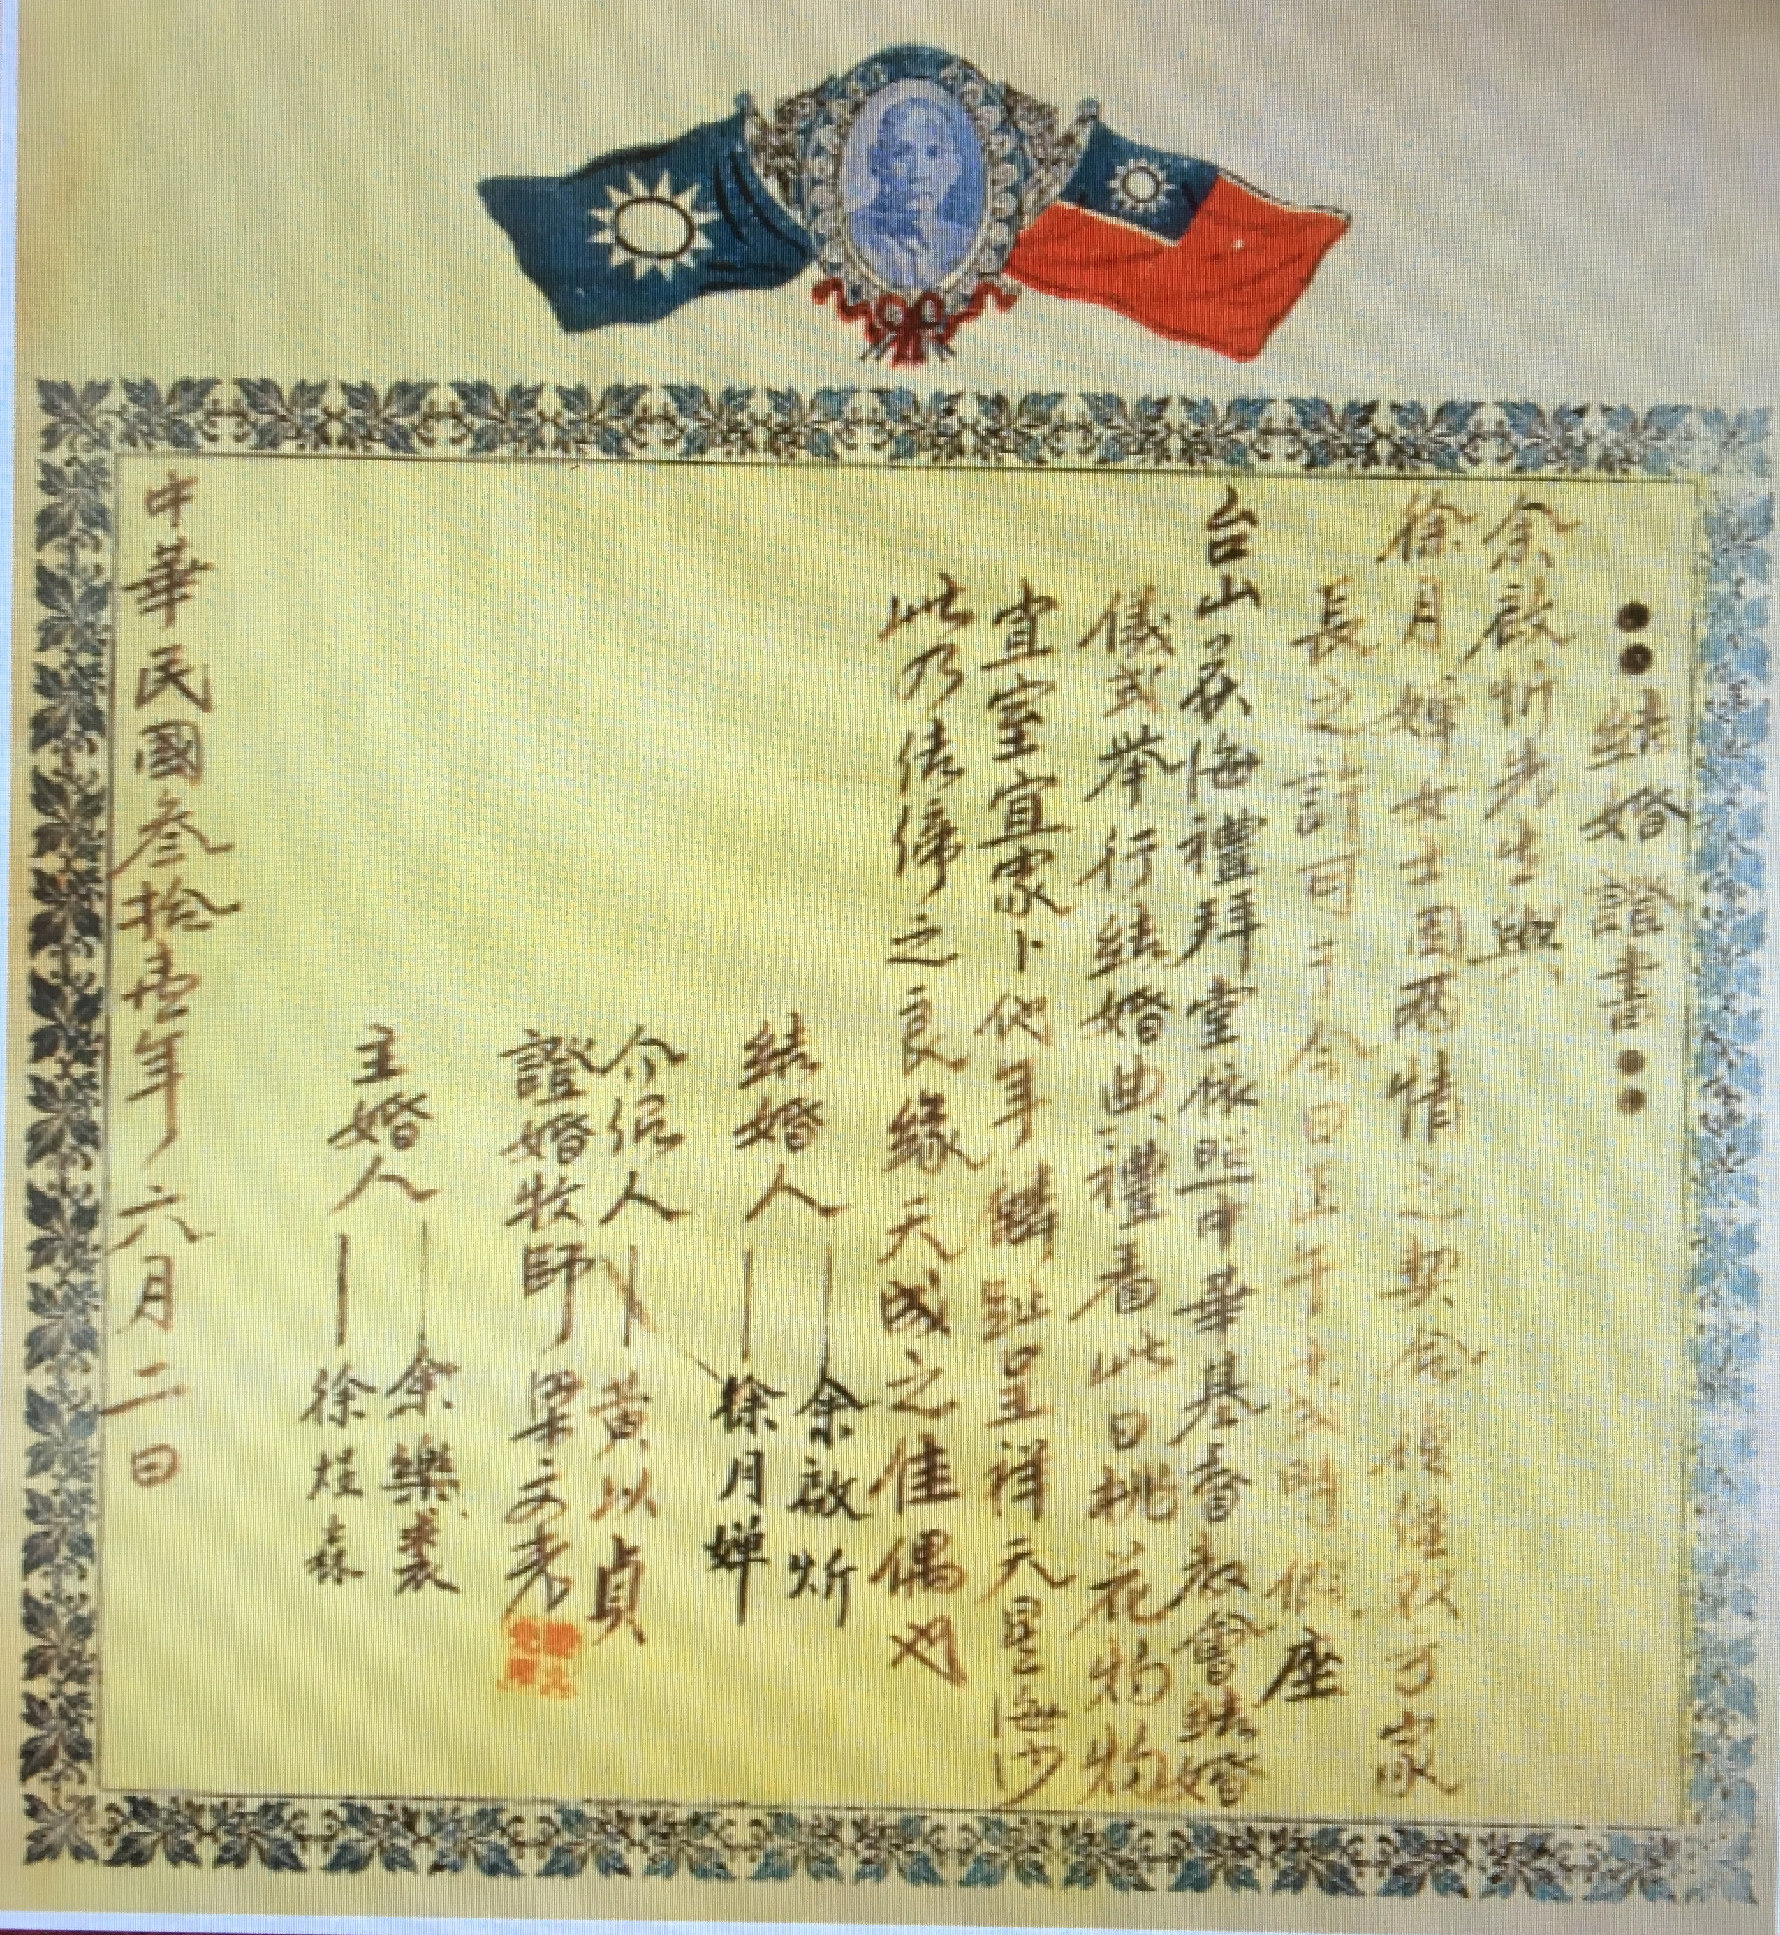 結婚證書
余啟炘先生與
徐月嬋女士因兩情之契合復經致了家
長之許可于今日上午十 時假座
台山 海禮拜堂依照中華基督教會結婚
儀式举行結婚典禮看此日桃花灼灼
宜室宜家卜他年麟趾呈祥天 海
此乃 之良緣天成之佳偶也
結婚人 余啟炘
徐月嬋
介紹人 黃以貞
證婚牧師 梁文
主婚人 余樂裘
徐 森
中華民國叁拾壹年六月二日